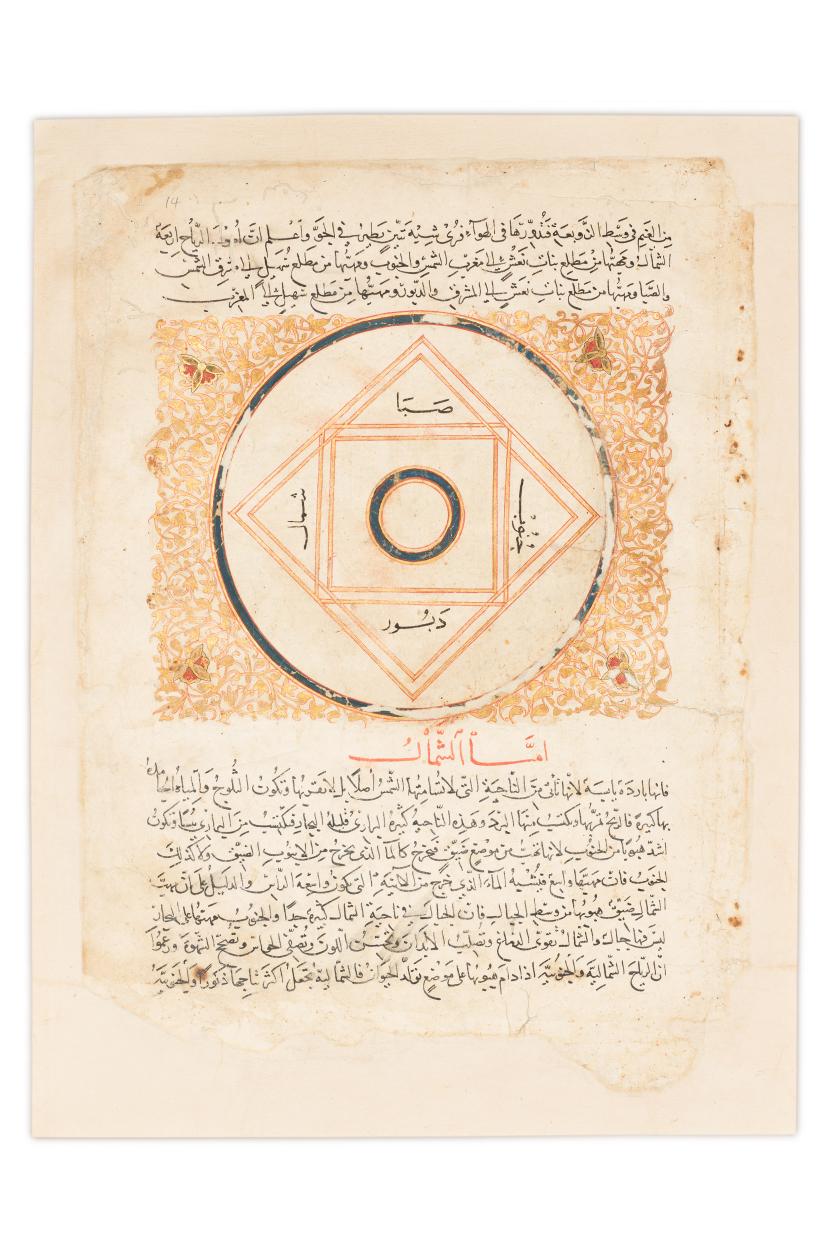 14
من الغيم في وسط الزوبعة فتذروها في الهواء فترى شبيه تنين يطير في الجو واعلم ان اصول الرياح اربعة
الشمال ومهبها من مطلع بنات نعش الى مغرب الشمس والجنوب ومهبها من مطلع سهيل الى مشرق الشمس
والصبا ومهبها من مطلع بنات نعش الى المشرق والدبور ومهبها من مطلع سهيل الى المغرب
صَبَا
شمال
جنوب
دبور
امّا الشّمال
فانها باردة يابسة لانها تاتي من الناحية التي لا تسامتها الشمس اصلا بل لا تقربها وتكون الثلوج والمياه الجامدة
بها كثيرة فالريح تمر بها وتكتسب منها البرد وهذه الناحية كثيرة البراري قليلة البحار فتكتسب من البراري يبسا وتكون
اشد هبوبا من الجنوب لانها تهب من موضع ضيق فتخرج كالماء الذي يخرج من الانبوب الضيق ولا كذلك
الجنوب فان مهبها واسع فتشبه الماء الذي خرج من الآنية التي تكون واسعة الراس والدليل على ان مهب
الشمال ضيق هبوبها من وسط الجبال فان الجبال في ناحية الشمال كثيرة جدا والجنوب مهبها على البحار
ليس فيها جبال والشمال تقوي الدماغ وتصلب الابدان وتحسن اللون وتصفي الحواس وتصحح الشهوة وزعموا
ان الرياح الشمالية والجنوبية اذا دام هبوبها على موضع توالد الحيوان فالشمالية تجعل اكثر نتاجها ذكورا والجنوبية